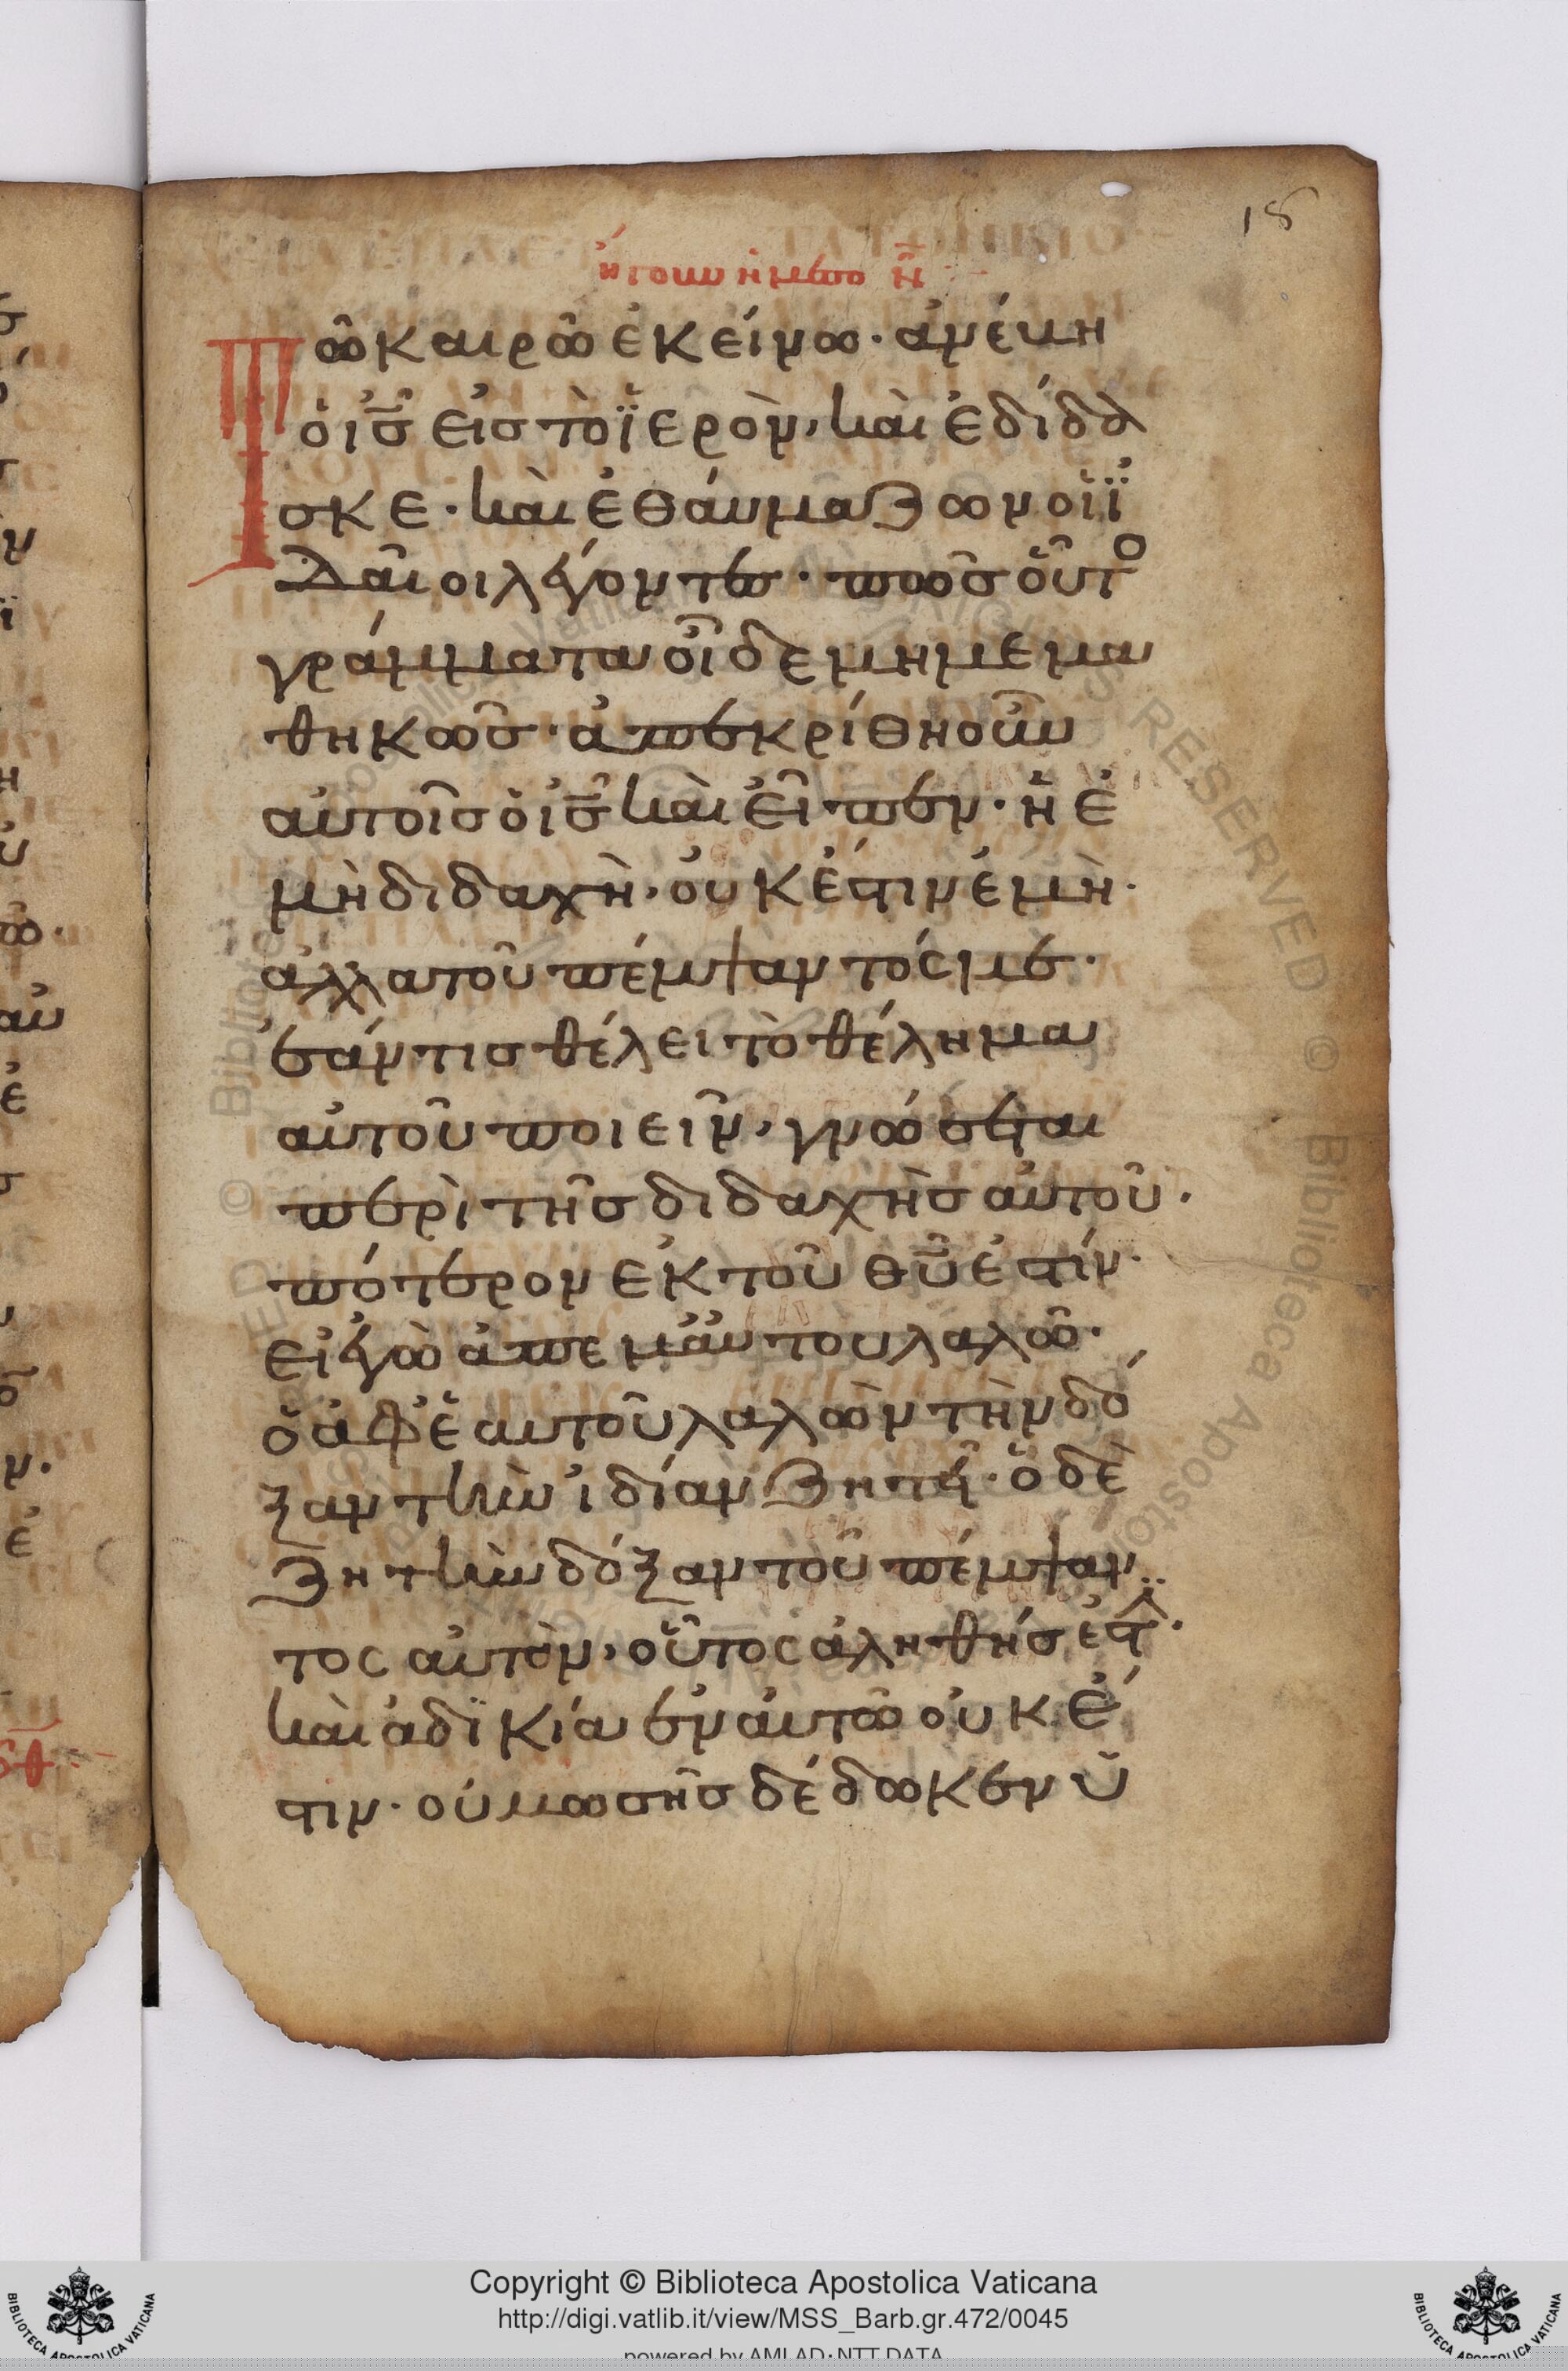 18
Τῶ καιρῶ ἐκείνω· ἀνέβη
ὁ ις̅ εἰς τὸ ϊερὸν, καὶ ἐδίδα
σκε· καὶ ἐθάυμαζων οἱ ϊ
δαῖοι λέγοντες· πῶς οὗτο
γράμματα οἶδε μὴ μεμα
θηκῶς· ἀπεκρίθη οὖν
αὐτοῖς ὁ ις̅ καὶ εἶπεν· ἡ ἐ
μὴ διδαχὴ, οὐκ ἔστιν ἐμὴ·
ἀλλα τοῦ πέμψαντός με·
ἐάν τις θέλει τὸ θέλημα
αὐτοῦ ποιεῖν, γνώσεται
περὶ τῆς διδαχὴς αὐτοῦ·
πότερον ἐκ τοῦ θυ̅ ἐστίν·
εἰ ἐγὼ ἀπ εμἀυτου λαλῶ·
ὁ ἀφ ἑαυτοῦ λαλὼν τὴν δό
ξαν τὴν ἰδίαν ζητεῖ· ὁ δὲ
ζητὴν δόξαν τοῦ πέμψαν
τος αὐτὸν, οὗτος ἀληθής ἐστ·
καὶ ἀδϊκία ἐν αὐτῶ οὐκ ἔ
στιν· οὐ μωσῆς δέδωκεν ὑ
Copyright © Biblioteca Apostolica Vaticana
http://digi.vatlib.it/view/MSS_Barb.gr.472/0045
powered by AMLAD·NTT DATA